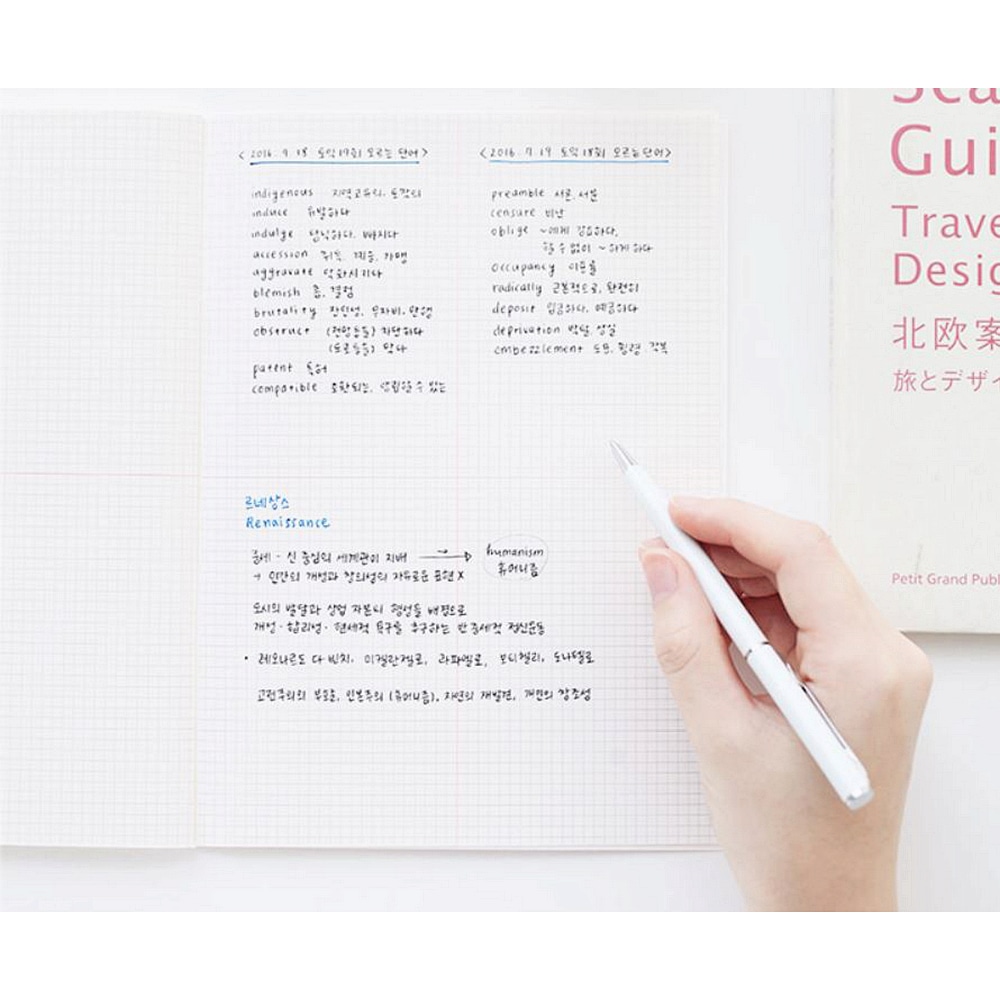 <2016. 7. 18 토익 17회 모르는 단어>
indigenous 지역 고유의, 토착의
induce 유발하다
indulge 탐닉하다, 빠지다
accession 취득, 계승, 가맹
aggravate 악화시키다
blemish 흠, 결점
brutality 잔인성, 무자비, 만행
obstruct (전망 등을) 차단하다
(도로 등을) 막다
patent 특허
compatible 호환되는, 양립할 수 있는
<2016. 7. 19 토익 18회 모르는 단어>
preamble 서론, 서문
censure 비난
oblige ~에게 강요하다,
할 수 없이 ~하게 하다
occupancy 이용률
radically 근본적으로, 완전히
deposit 입금하다, 예금하다
deprivation 박탈, 상실
embezzlement 도용, 횡령, 착복
르네상스
Renaissance
중세 - 신 중심의 세계관이 지배 → humanism
휴머니즘
→ 인간의 개성과 창의성의 자유로운 표현 X
도시의 발달과 상업 자본의 형성을 배경으로
개성·합리성·현세적 욕구를 추구하는 반중세적 정신운동
• 레오나르도 다 빈치, 미켈란젤로, 라파엘로, 보티첼리, 도나텔로
고전주의의 부흥, 인본주의 (휴머니즘), 자연의 재발견, 개인의 창조성
Gui
Trave
Desig
北欧案
旅とデザイ
Petit Grand Publ